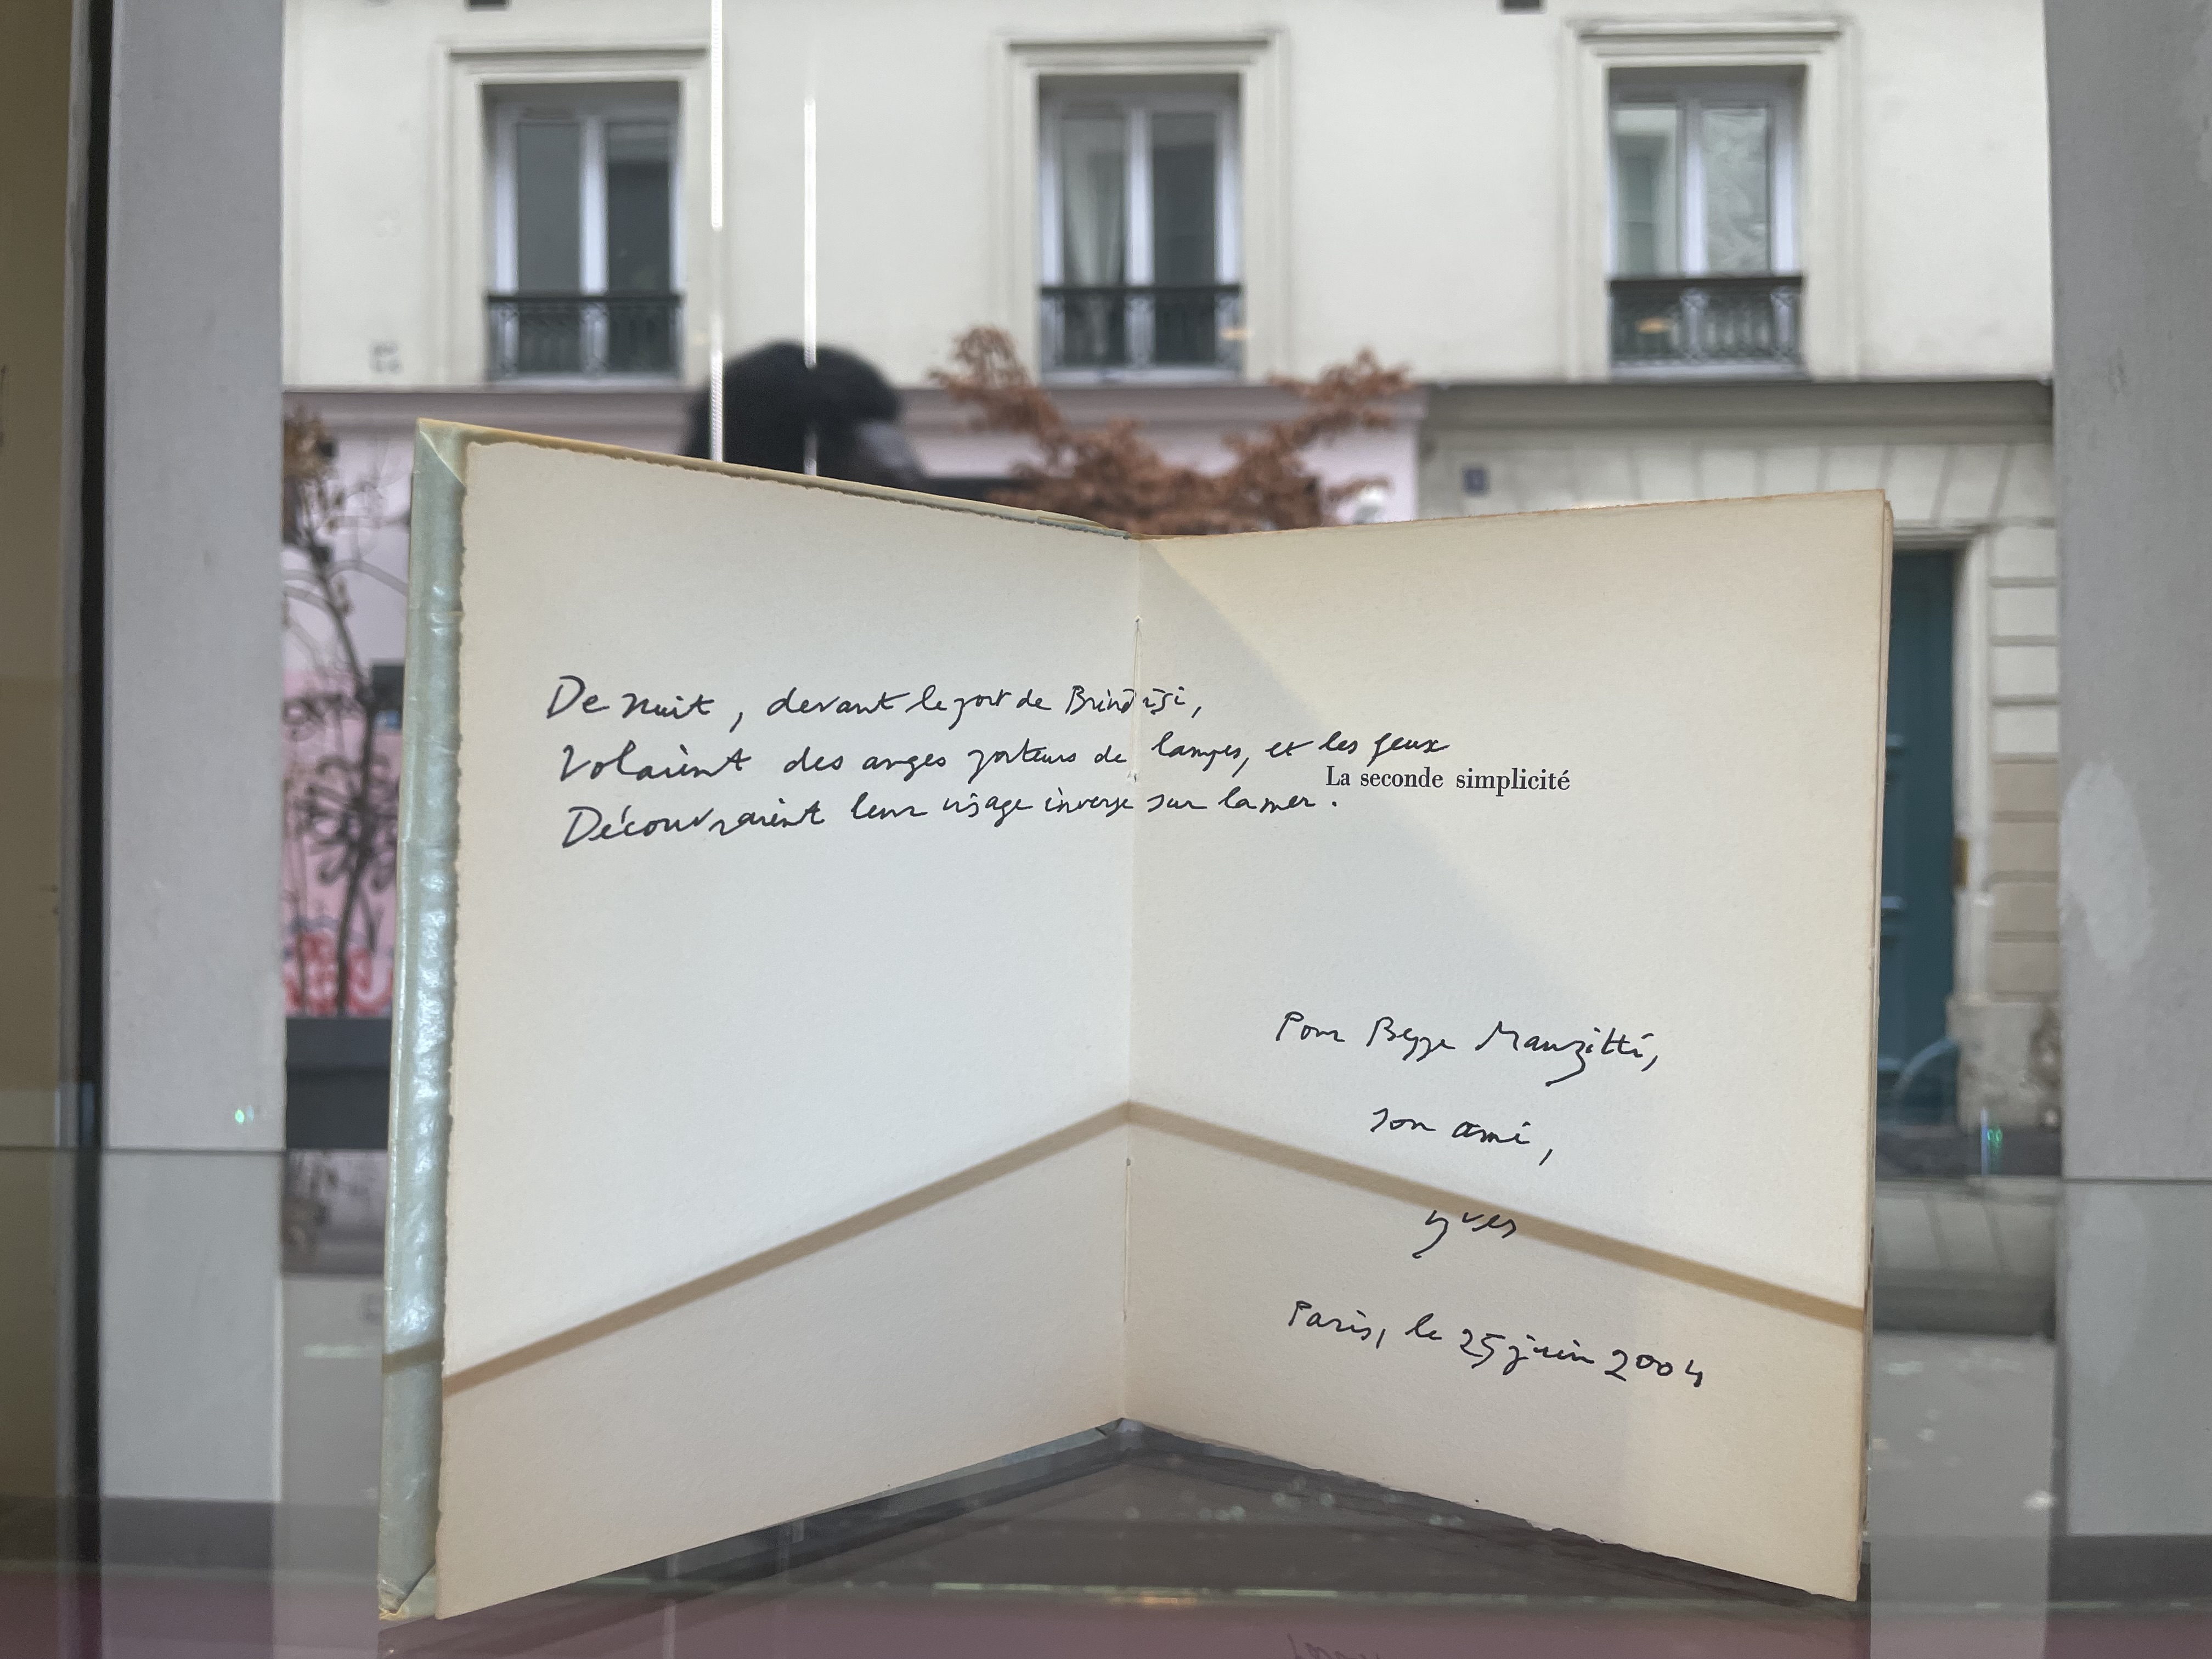 De nuit, devant le port de Brindisi,
Volaient des anges porteurs de lampes, et les feux
La seconde simplicité
Découvraient leur visage inverse sur la mer.
Pour Beppe Manzitti,
son ami,
Yves
Paris, le 25 juin 2004